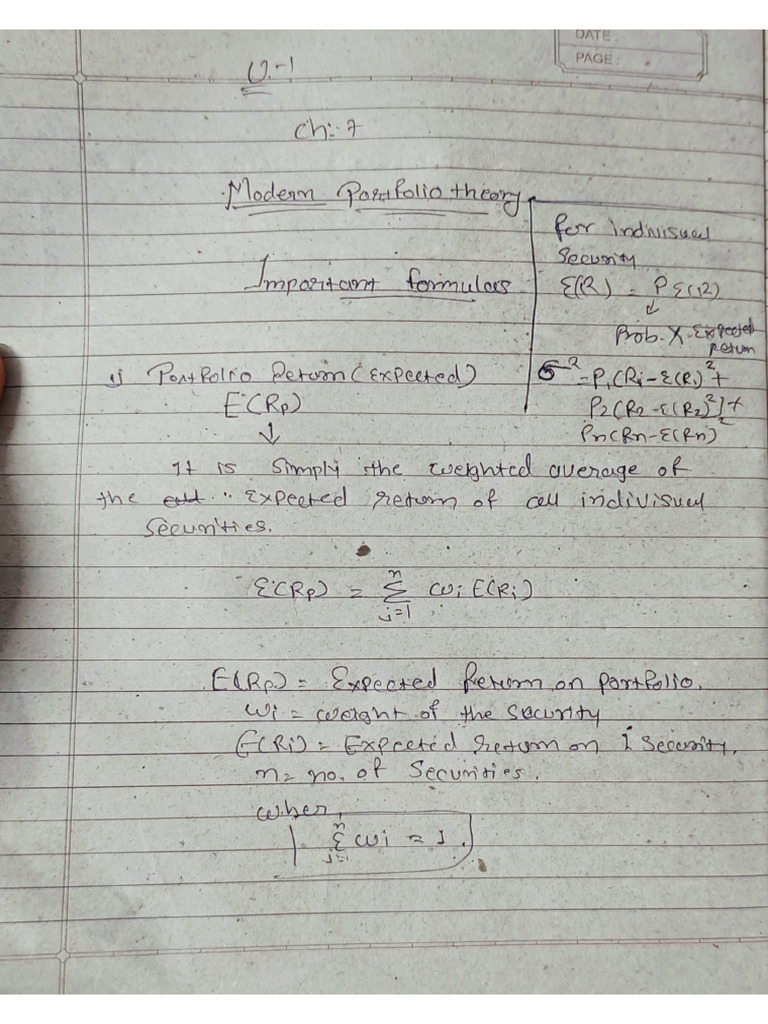 DATE:
PAGE:
U.-1
Ch:- 7
Modern Portfolio theory
Important formulas
for indivisual
Security
E(R) = P E(R)
↓
Prob. X Expected
Return
σ² = P1(Ri - E(R1)² +
P2(R2 - E(R2)²] +
Pn(Rn - E(Rn)²
1) Portfolio Return (Expected)
E(Rp)
↓
It is simply the weighted average of
the Expected return of all indivisual
Securities.
E(Rp) = n Σ j=1 wi E(Ri)
E(Rp) = Expected Return on portfolio.
Wi = weight of the security
E(Ri) = Expected return on I Security.
n = no. of Securities.
wher,
n Σ j=1 wi = 1.